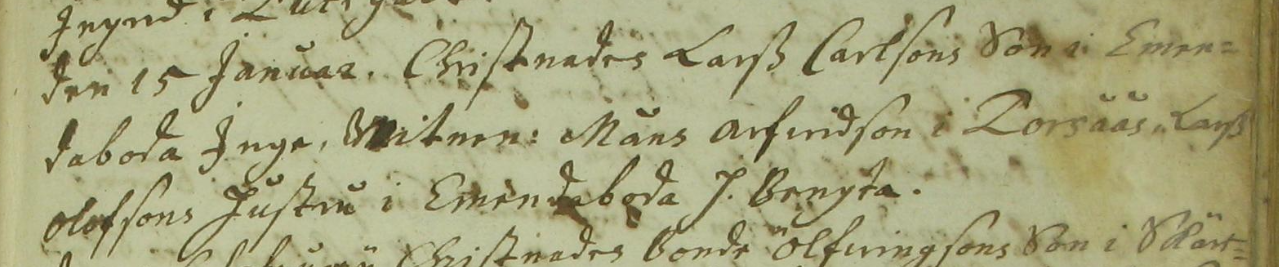 den 15 Januar. Christnades Larß Carlsons Son i Emen=
daboda Inge, Witnen: Måns Arfvidson i Torsåås, Larß
Olofsons Hustru i Emendaboda H. Bengta.
Christnades Bonde Olfvingsons Son i Skärt=